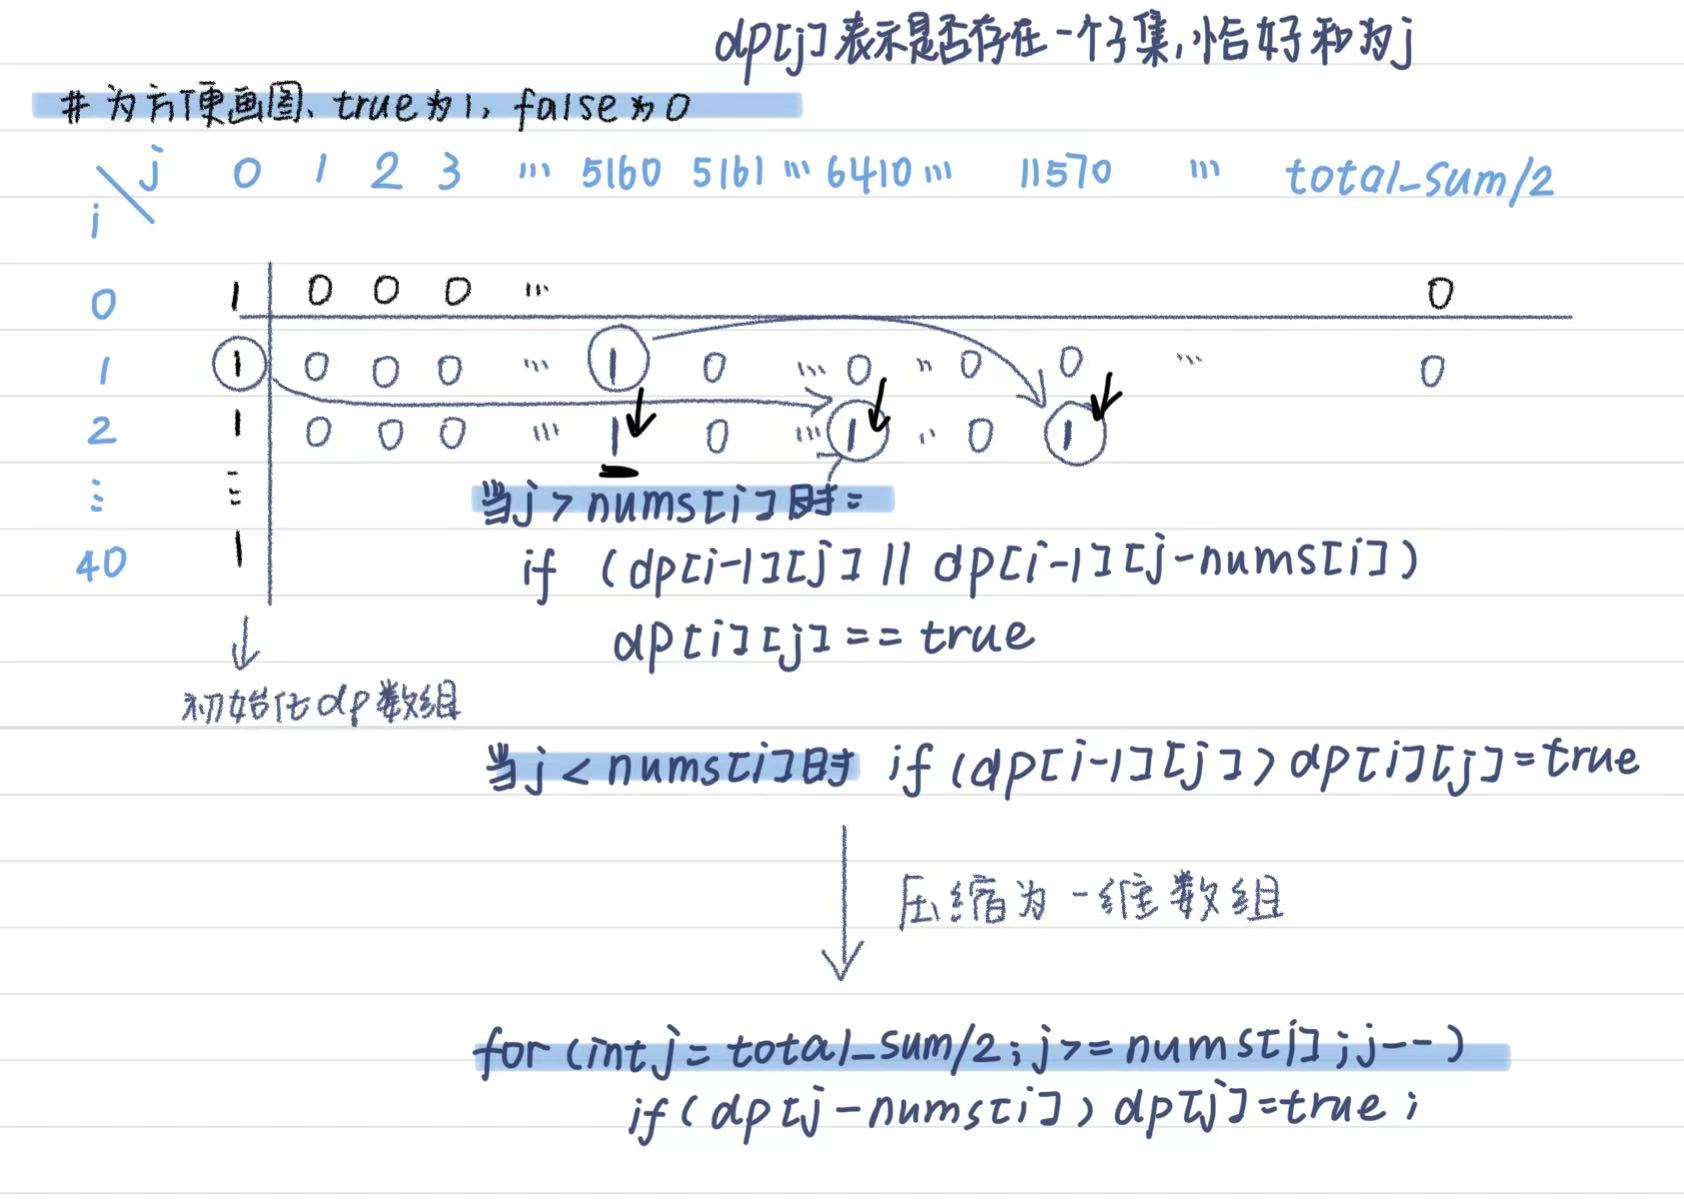 dp[j]表示是否存在一个子集,恰好和为j
# 为方便画图、true为1, false为0
j 0 1 2 3 ... 5160 5161 ... 6410 ... 11570 ... total_sum/2
i
0 1 0 0 0 ... 0
1 1 0 0 0 ... 1 0 ... 0 .. 0 0 ... 0
2 1 0 0 0 ... 1 0 ... 1 .. 0 1
⋮ ⋮
当j>nums[i]时:
40 1
if (dp[i-1][j] || dp[i-1][j-nums[i])
dp[i][j]==true
初始化dp数组
当j<nums[i]时 if(dp[i-1][j])dp[i][j]=true
压缩为一维数组
for(int j=total_sum/2;j>=nums[i];j--)
if(dp[j-nums[i])dp[j]=true;